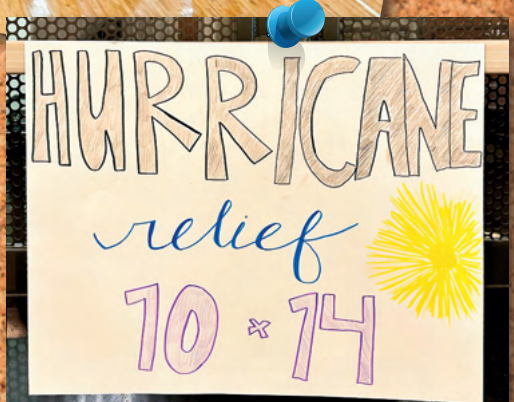 HURRICANE
relief
10 x 14